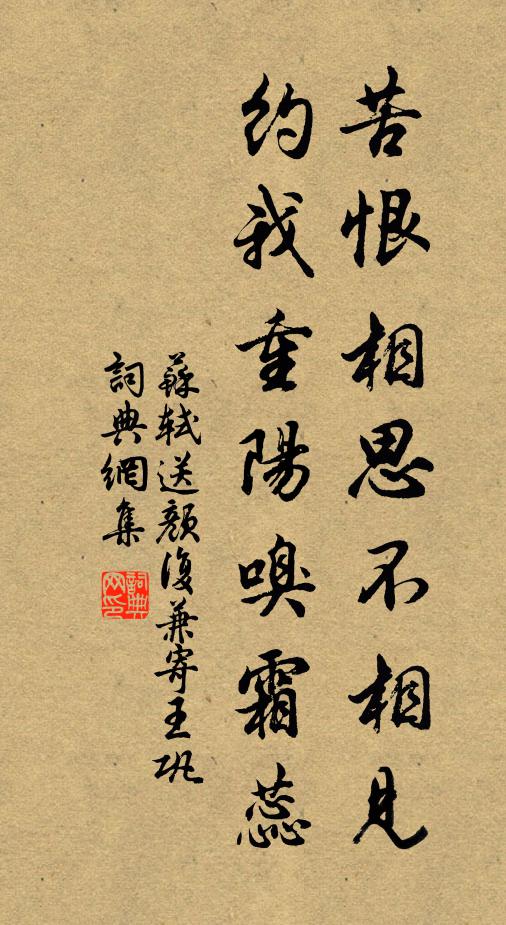 苦恨相思不相見
約我重陽嗅霜蕊
蘇軾送顏復兼寄王鞏
詞典網集
詞典網印